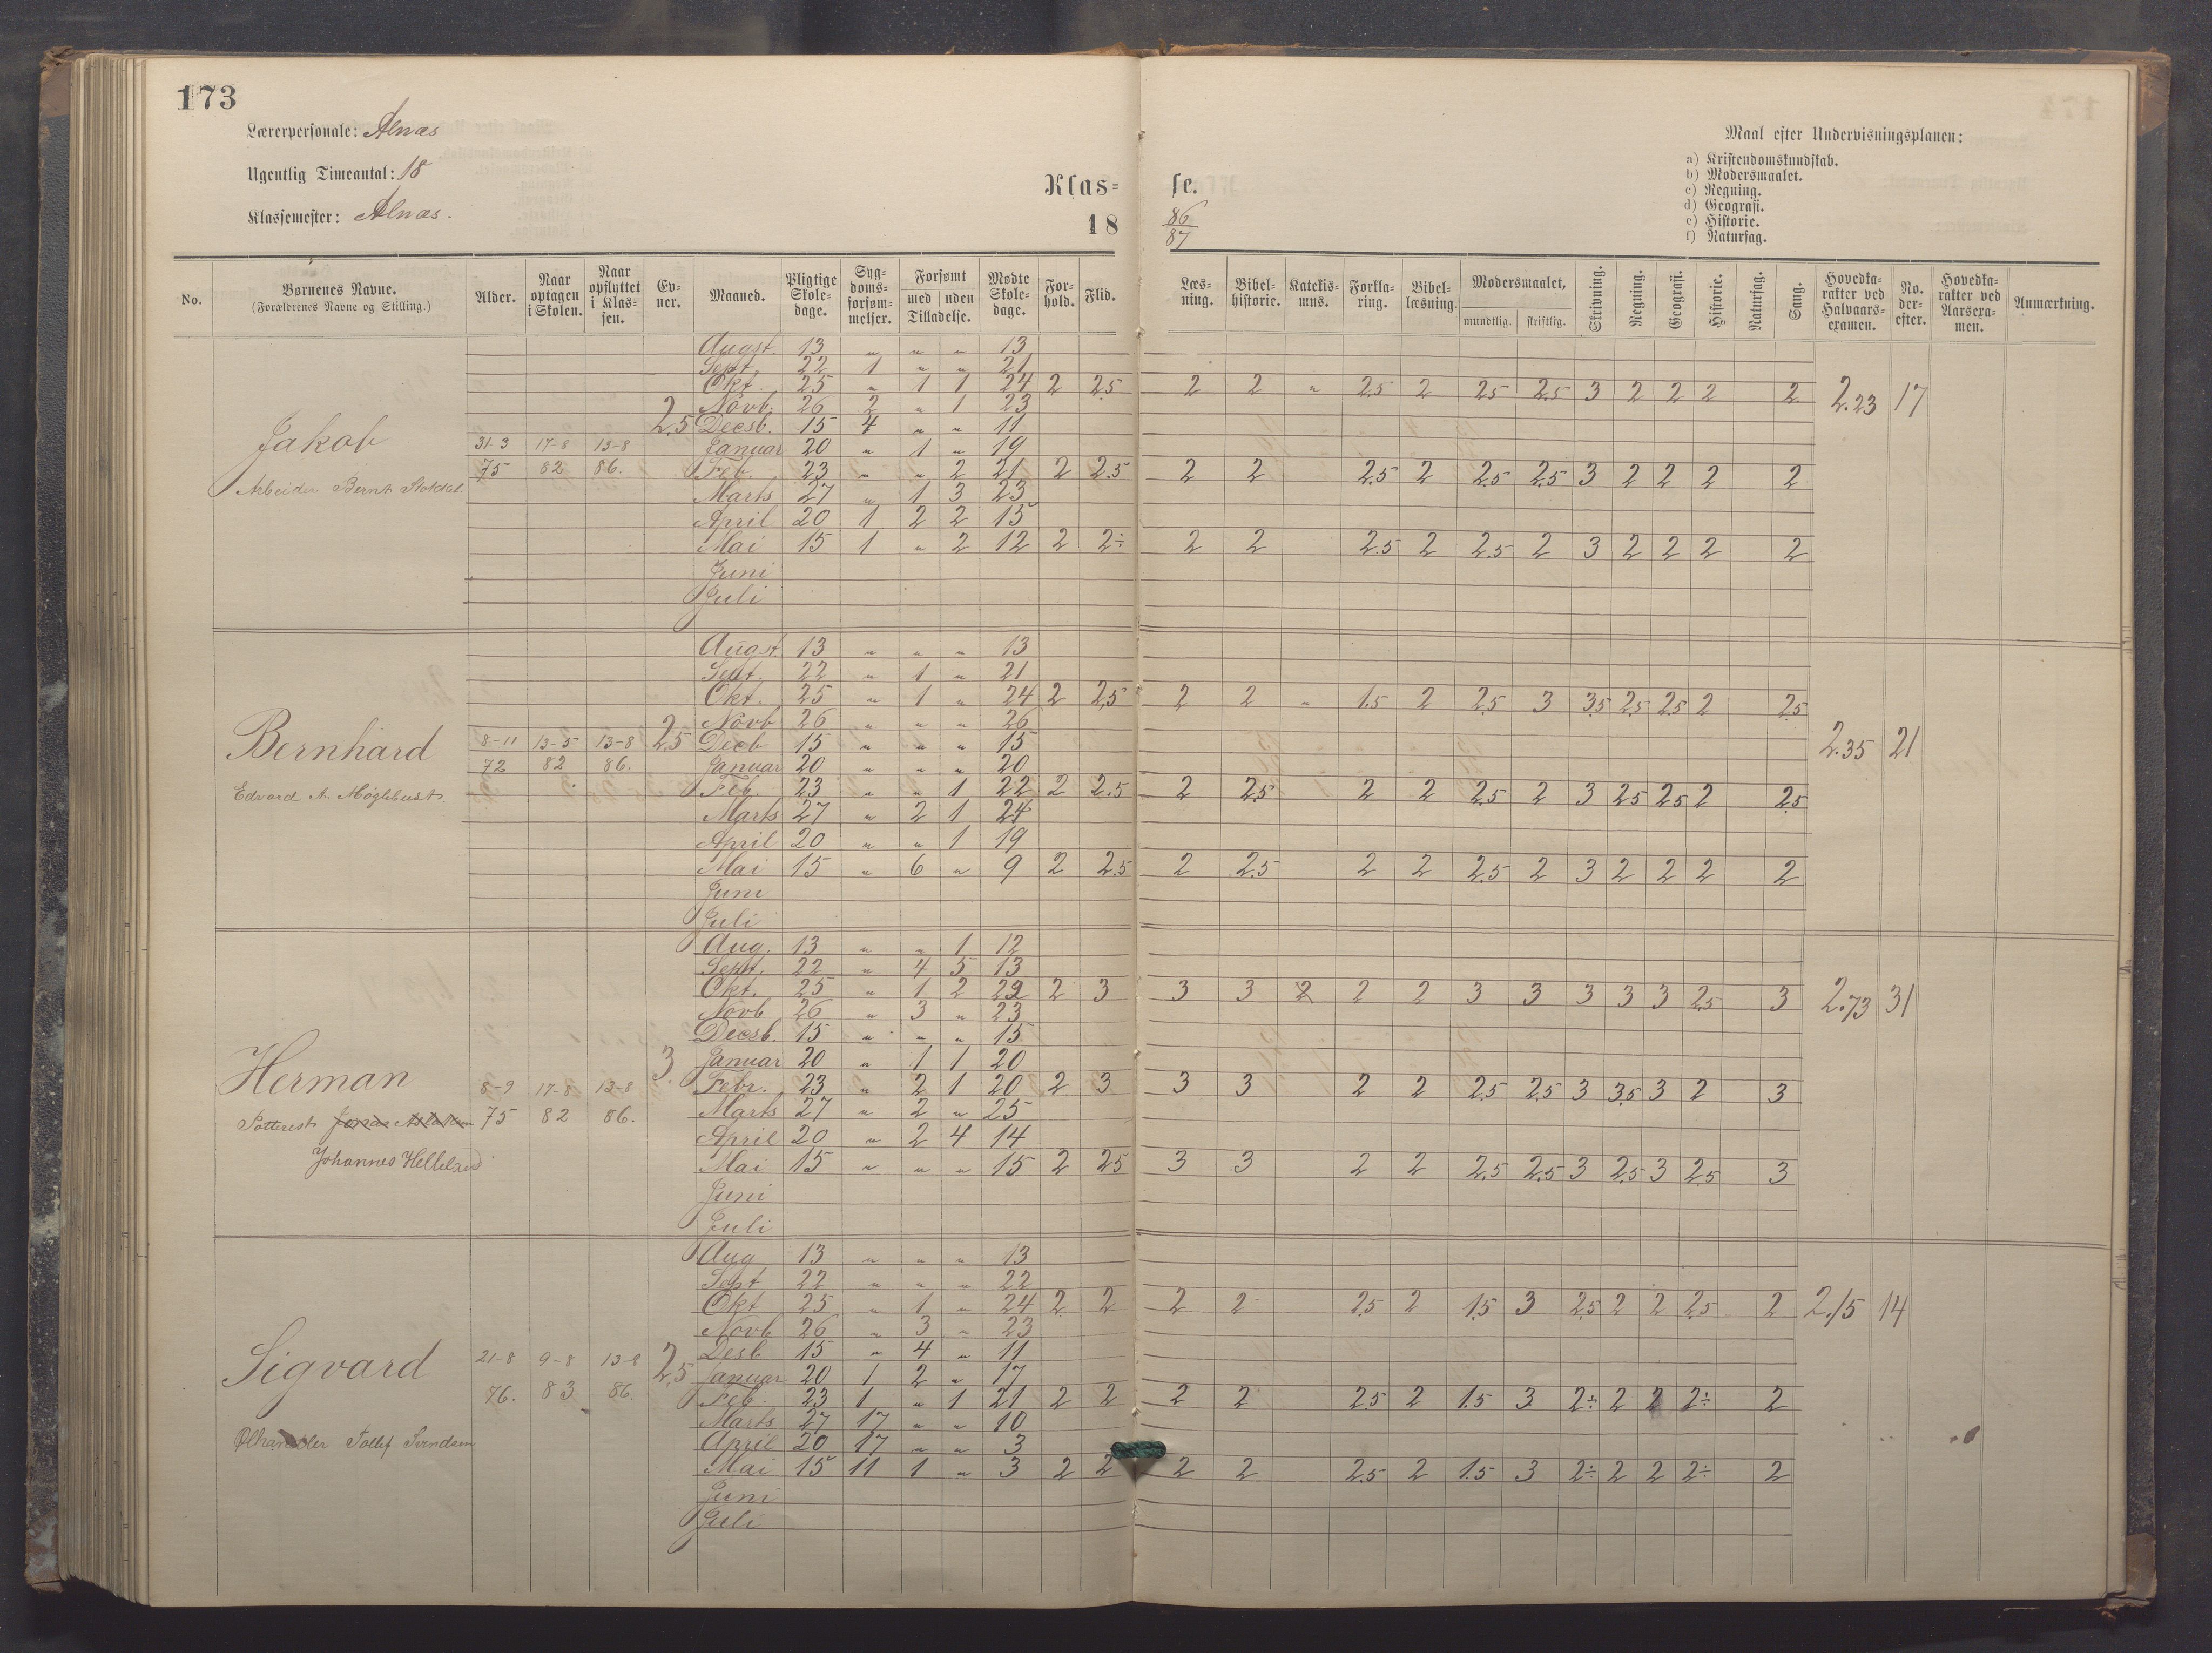 173
Lærerpersonale: Alnæs
Ugentlig Timeantal: 18
Klassemester: Alnæs.
Klas= se.
18 86/87
Maal efter Undervisningsplanen:
a) Kristendomskundskab.
b) Modersmaalet.
c) Regning.
d) Geografi.
e) Historie.
f) Naturfag.
No. Børnenes Navne. (Forældrenes Navne og Stilling.) Alder. Naar optagen i Skolen. Naar opflyttet i Klassen. Evner. Maaned. Pligtige Skoledage. Sygdomsforsømmelser. Forsømt med uden Tilladelse. Mødte Skoledage. Forhold. Flid. Læsning. Bibelhistorie. Katekismus. Forklaring. Bibellæsning. Modersmaalet, mundtlig. skriftlig. Skrivning. Regning. Geografi. Historie. Naturfag. Sang. Hovedkarakter ved Halvaarsexamen. No. derefter. Hovedkarakter ved Aarsexamen. Anmærkning.
Augst. 13 " " " 13
Sept. 22 1 " " 21
Okt. 25 " 1 1 24 2 2.5 2 2 " 2.5 2 2.5 2.5 3 2 2 2 2 2.23 17
Novb. 26 2 " 1 23
2.5 Decsb. 15 4 " " 11
Jakob 31-3 17-8 13-8 Januar 20 " 1 " 19
75 82 86. Feb. 23 " " 2 21 2 2.5 2 2 2.5 2 2.5 2.5 3 2 2 2 2
Arbeider Bernt
Marts 27 " 1 3 23
April 20 1 2 2 15
Mai 15 1 " 2 12 2 2÷ 2 2 2.5 2 2.5 2 3 2 2 2 2
Juni
Juli
Augst. 13 " " " 13
Sept. 22 " 1 " 21
Okt. 25 " 1 " 24 2 2.5 2 2 " 1.5 2 2.5 3 3.5 2.5 2.5 2 2.5
Novb 26 " " " 26
Bernhard 8-11 13-5 13-8 2.5 Decb 15 " " " 15 2.35 21
72 82 86. Januar 20 " " " 20
Edvard A. Møglebust
Feb. 23 " " 1 22 2 2.5 2 2.5 2 2 2.5 2 3 2.5 2.5 2 2.5
Marts 27 " 2 1 24
April 20 " " 1 19
Mai 15 " 6 " 9 2 2.5 2 2.5 2 2 2.5 2 3 2 2 2 2
Juni
Juli
Aug. 13 " " 1 12
Sept. 22 " 4 5 13
Okt. 25 " 1 2 22 2 3 3 3 2 2 2 3 3 3 3 3 2.5 3 2.73 31
Novb 26 " 3 " 23
Decsb. 15 " " " 15
3. Januar 20 " 1 1 20
Herman 8-9 17-8 13-8 Febr. 23 " 2 1 20 2 3 3 3 2 2 2.5 2.5 3 3.5 3 2 3
75 82 86. Marts 27 " 2 " 25
April 20 " 2 4 14
Johannes Helleland
Mai 15 " " " 15 2 2.5 3 3 2 2 2.5 2.5 3 2.5 3 2.5 3
Juni
Juli
Aug 13 " " " 13
Sept 22 " " " 22
Okt 25 " 1 " 24 2 2 2 2 2.5 2 1.5 3 2.5 2 2 2.5 2 2.15 14
Novb 26 " 3 " 23
Sigvard 21-8 9-8 13-8 2.5 Desb 15 " 4 " 11
Januar 20 1 2 " 17
76. 83 86. Feb. 23 1 " 1 21 2 2 2 2 2.5 2 1.5 3 2÷ 2 2 2÷ 2
Marts 27 17 " " 10
Ølhandler Tollef Svendsen
April 20 17 " " 3
Mai 15 11 1 " 3 2 2 2 2 2.5 2 1.5 3 2÷ 2 2 2÷ 2
Juni
Juli